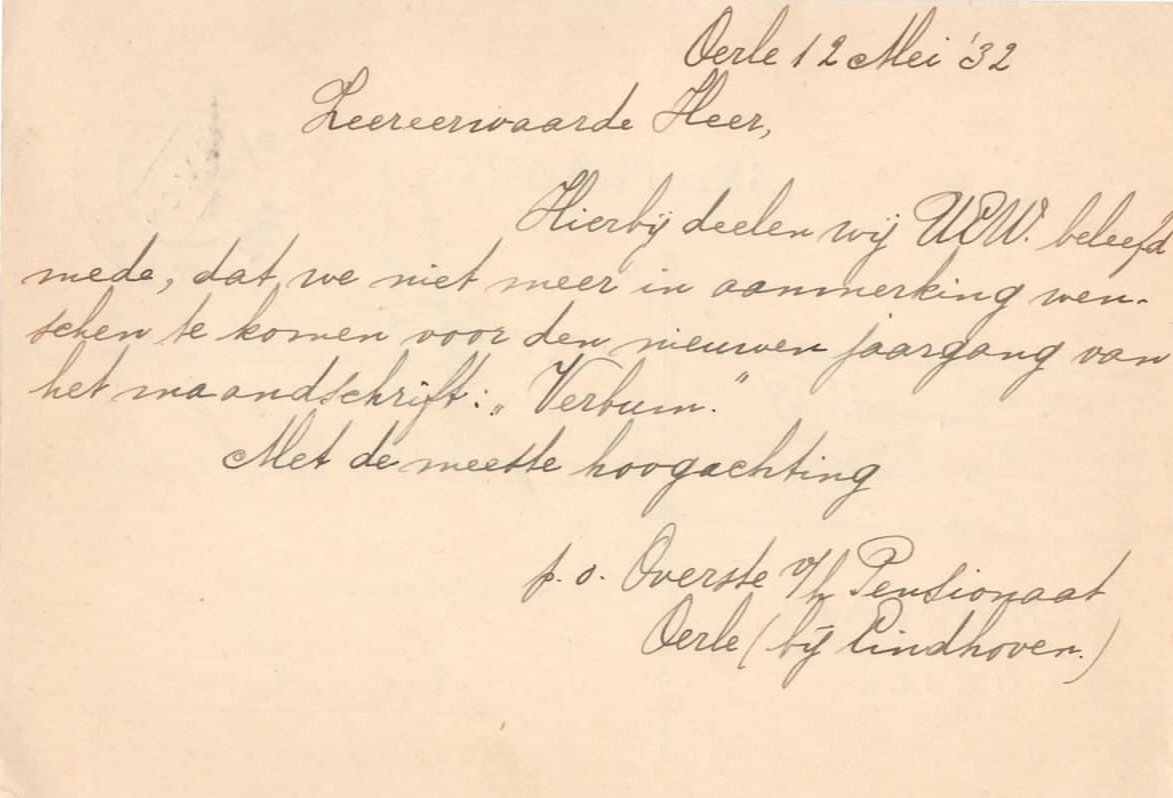 Oerle 12 Mei '32
Zeereerwaarde Heer,
Hierbij deelen wij UEW. beleefd
mede, dat we niet meer in aanmerking wen-
schen te komen voor den nieuwen jaargang van
het maandschrift: „Verbum."
Met de meeste hoogachting
p. o. Overste v/h Pensionaat
Oerle (bij Eindhoven.)